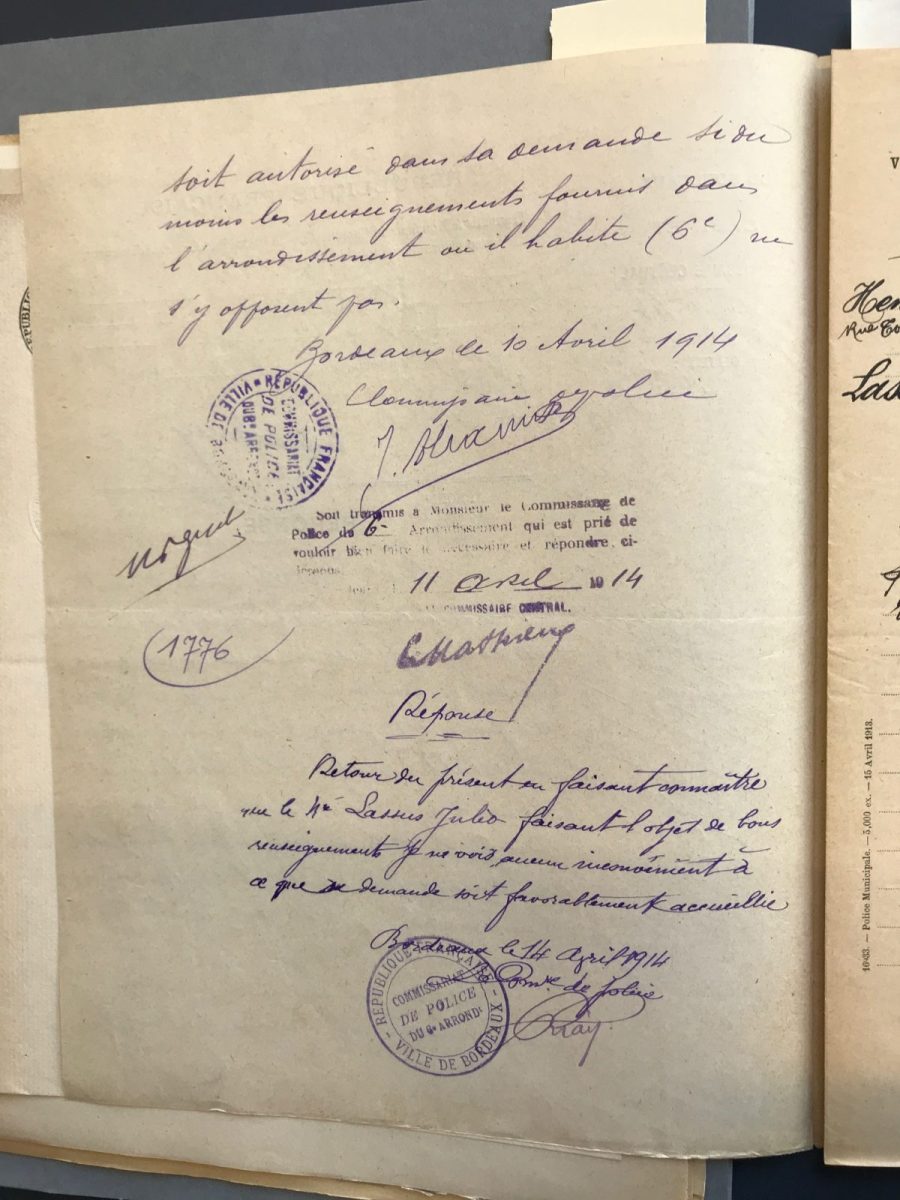 soit autorisé dans sa demande si du
moins les renseignements fournis dans
l'arrondissement où il habite (6e) ne
s'y opposent pas.
Bordeaux le 10 Avril 1914
Commissaire de police
RÉPUBLIQUE FRANÇAISE
VILLE DE
COMMISSARIAT
DE POLICE
Soit transmis à Monsieur le Commissaire de
Police du 6e Arrondissement qui est prié de
vouloir bien faire le nécessaire et répondre, ci-
dessous.
11 avril 1914
LE COMMISSAIRE CENTRAL.
1776
Réponse
Retour du présent en faisant connaître
que le né Lassus Julio faisant l'objet de bons
renseignements je ne vois aucun inconvénient à
ce que sa demande soit favorablement accueillie
Bordeaux le 14 avril 1914
Le Comre de police
RÉPUBLIQUE FRANÇAISE
COMMISSARIAT
DE POLICE
DU 6e ARRONDt
VILLE DE BORDEAUX
Hen
Rue
Las
1633. — Police Municipale. — 5,000 ex. — 15 Avril 1913.